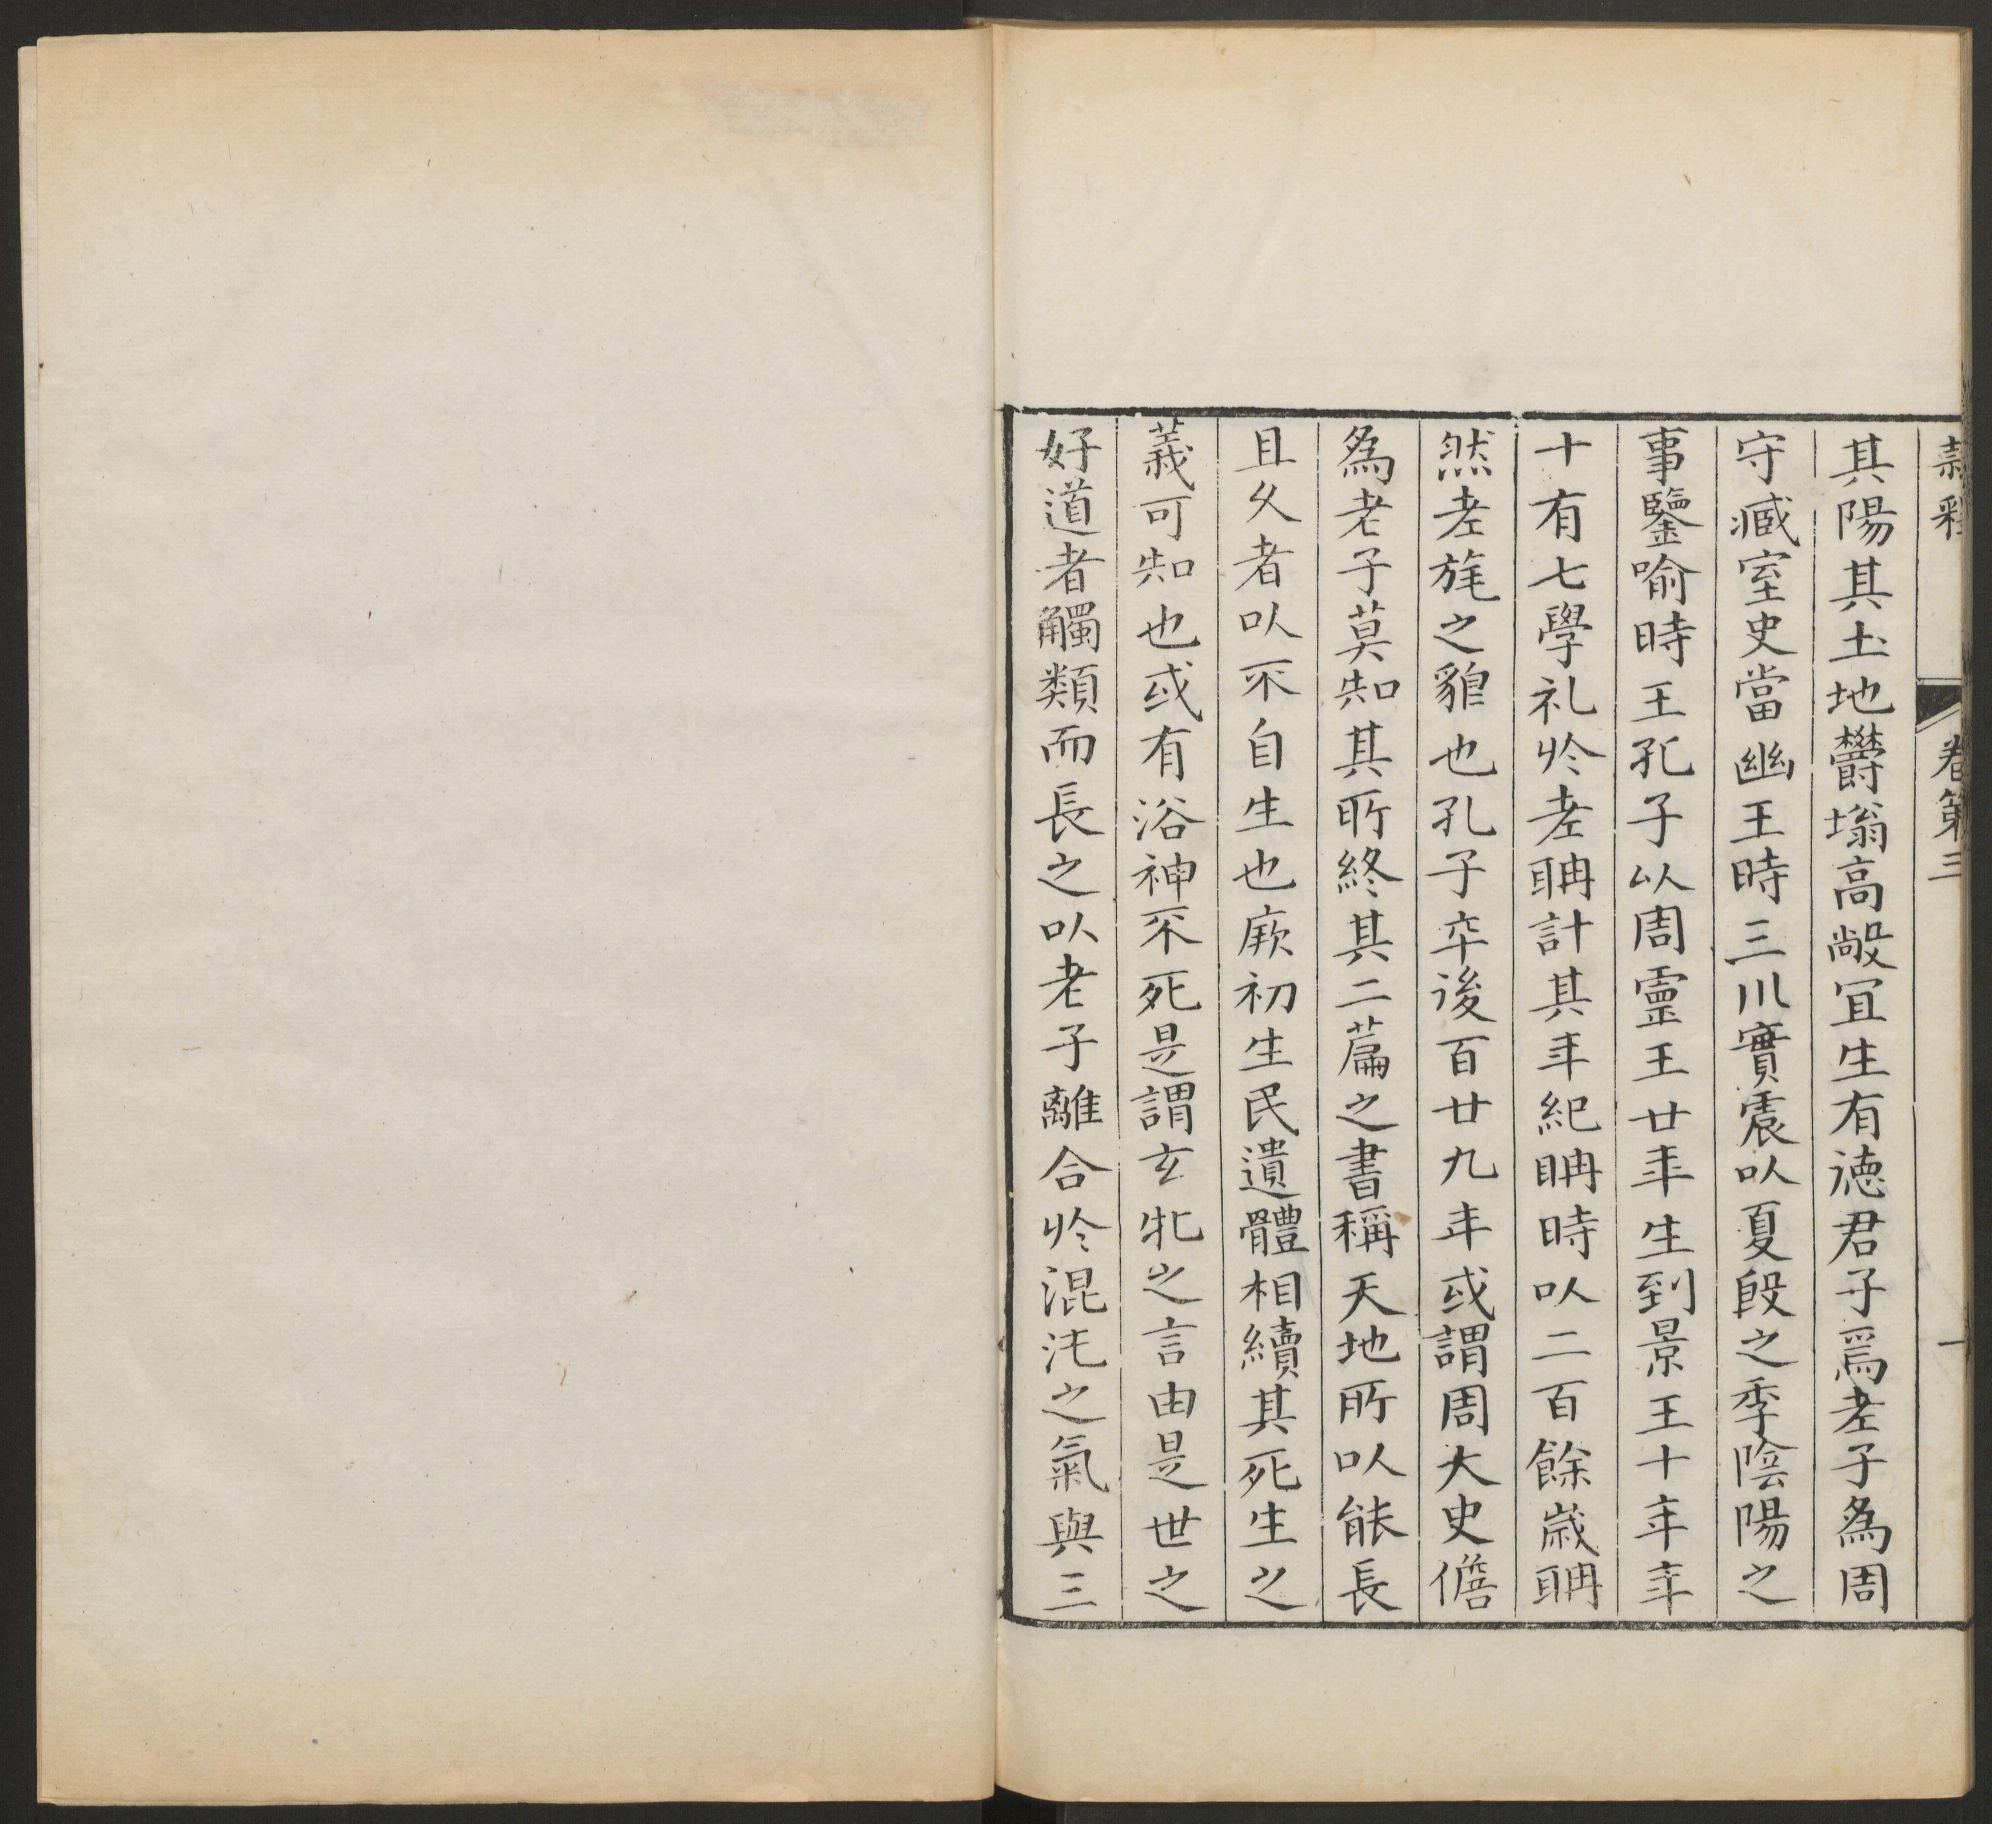 隸釋 卷第三 一
其陽其土地鬱塕高敞冝生有徳君子焉老子為周
守臧室史當幽王時三川實震以夏殷之季陰陽之
事鑒喻時王孔子以周靈王廿年生到景王十年年
十有七學礼扵老聃計其年紀聃時以二百餘歲聃
然老旄之貌也孔子卒後百廿九年或謂周大史儋
為老子莫知其所終其二萹之書稱天地所以能長
且久者以不自生也厥初生民遺體相續其死生之
義可知也或有浴神不死是謂玄牝之言由是世之
好道者觸類而長之以老子離合扵混沌之氣與三